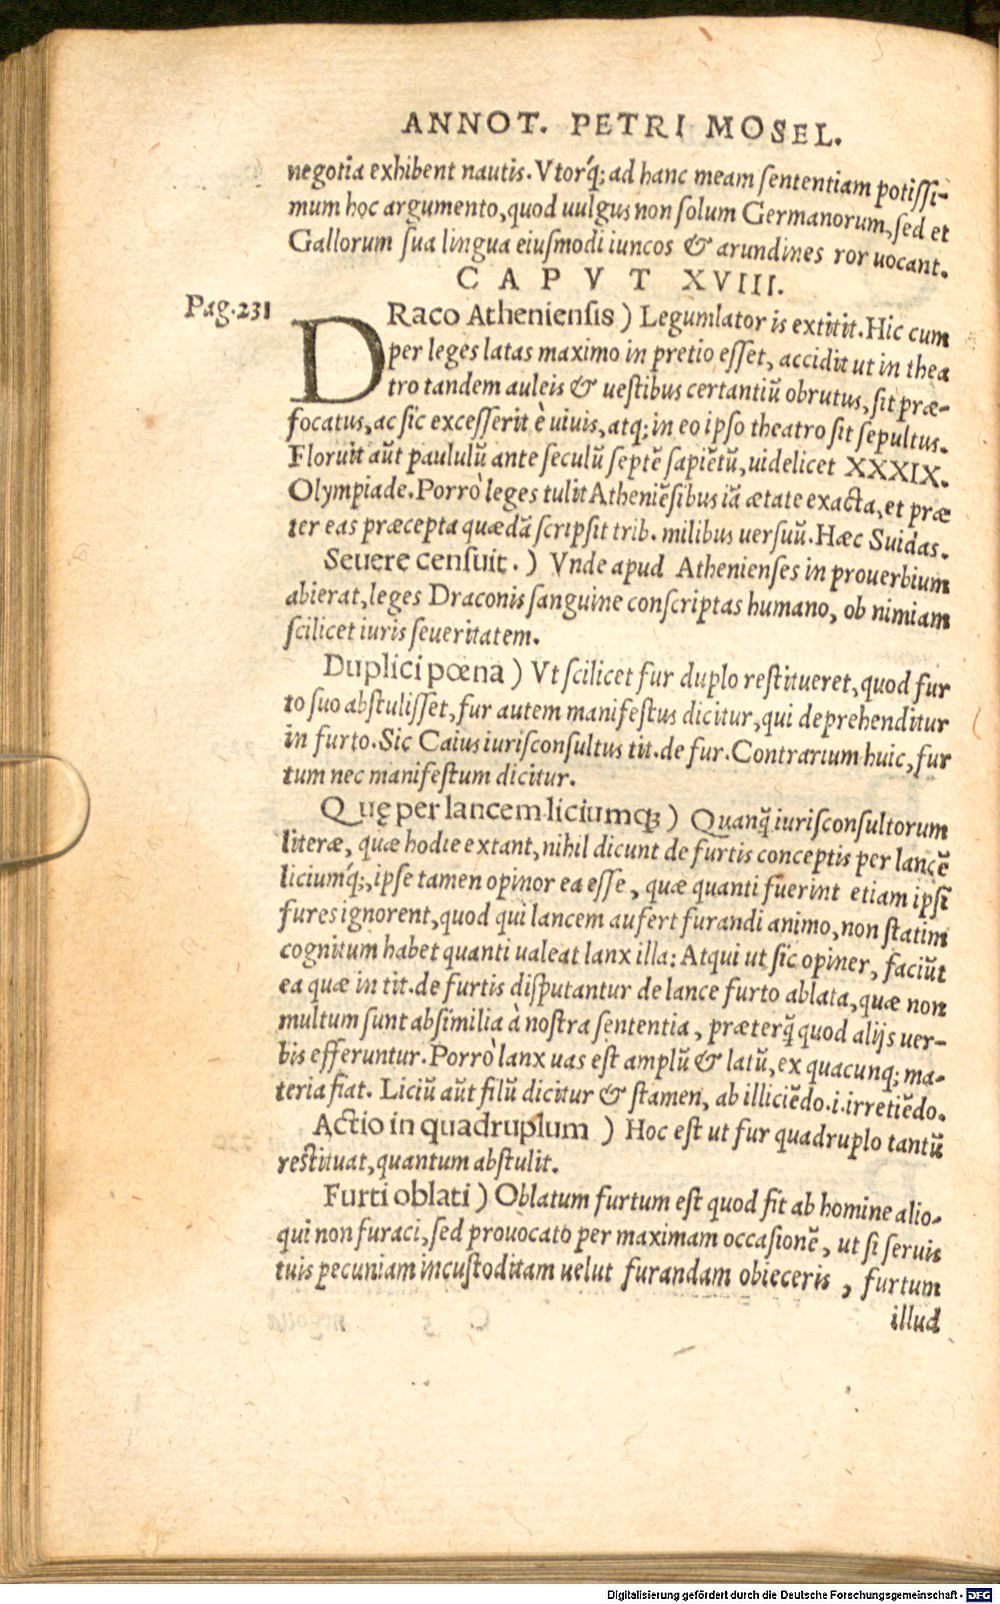 ANNOT. PETRI MOSEL.
negotia exhibent nautis. Vtorq́; ad hanc meam sententiam potissi-
mum hoc argumento, quod uulgus non solum Germanorum, sed et
Gallorum sua lingua eiusmodi iuncos & arundines ror uocant.
CAPVT XVIII.
Pag. 231
DRaco Atheniensis ) Legumlator is extitit. Hic cum
per leges latas maximo in pretio esset, accidit ut in thea
tro tandem auleis & uestibus certantiũ obrutus, sit præ-
focatus, ac sic excesserit è uiuis, atq; in eo ipso theatro sit sepultus.
Floruit aũt paululũ ante seculũ septẽ sapiẽtũ, uidelicet XXXIX.
Olympiade. Porrò leges tulit Atheniẽsibus iã ætate exacta, et præ
ter eas præcepta quædã scripsit trib. milibus uersuũ. Hæc Suidas.
Seuere censuit. ) Vnde apud Athenienses in prouerbium
abierat, leges Draconis sanguine conscriptas humano, ob nimiam
scilicet iuris seueritatem.
Duplici pœna ) Vt scilicet fur duplo restitueret, quod fur
to suo abstulisset, fur autem manifestus dicitur, qui deprehenditur
in furto. Sic Caius iurisconsultus tit. de fur. Contrarium huic, fur
tum nec manifestum dicitur.
Quę per lancem liciumq; ) Quanq̃ iurisconsultorum
literæ, quæ hodie extant, nihil dicunt de furtis conceptis per lancẽ
liciumq́;, ipse tamen opinor ea esse, quæ quanti fuerint etiam ipsi
fures ignorent, quod qui lancem aufert furandi animo, non statim
cognitum habet quanti ualeat lanx illa: Atqui ut sic opiner, faciũt
ea quæ in tit. de furtis disputantur de lance furto ablata, quæ non
multum sunt absimilia à nostra sententia, præterq̃ quod alijs uer-
bis efferuntur. Porrò lanx uas est amplũ & latũ, ex quacunq; ma-
teria fiat. Liciũ aũt filũ dicitur & stamen, ab illiciẽdo .i. irretiẽdo.
Actio in quadruplum ) Hoc est ut fur quadruplo tantũ
restituat, quantum abstulit.
Furti oblati ) Oblatum furtum est quod fit ab homine alio-
qui non furaci, sed prouocato per maximam occasionẽ, ut si seruis
tuis pecuniam incustoditam uelut furandam obieceris, furtum
illud
Digitalisierung gefördert durch die Deutsche Forschungsgemeinschaft - DFG